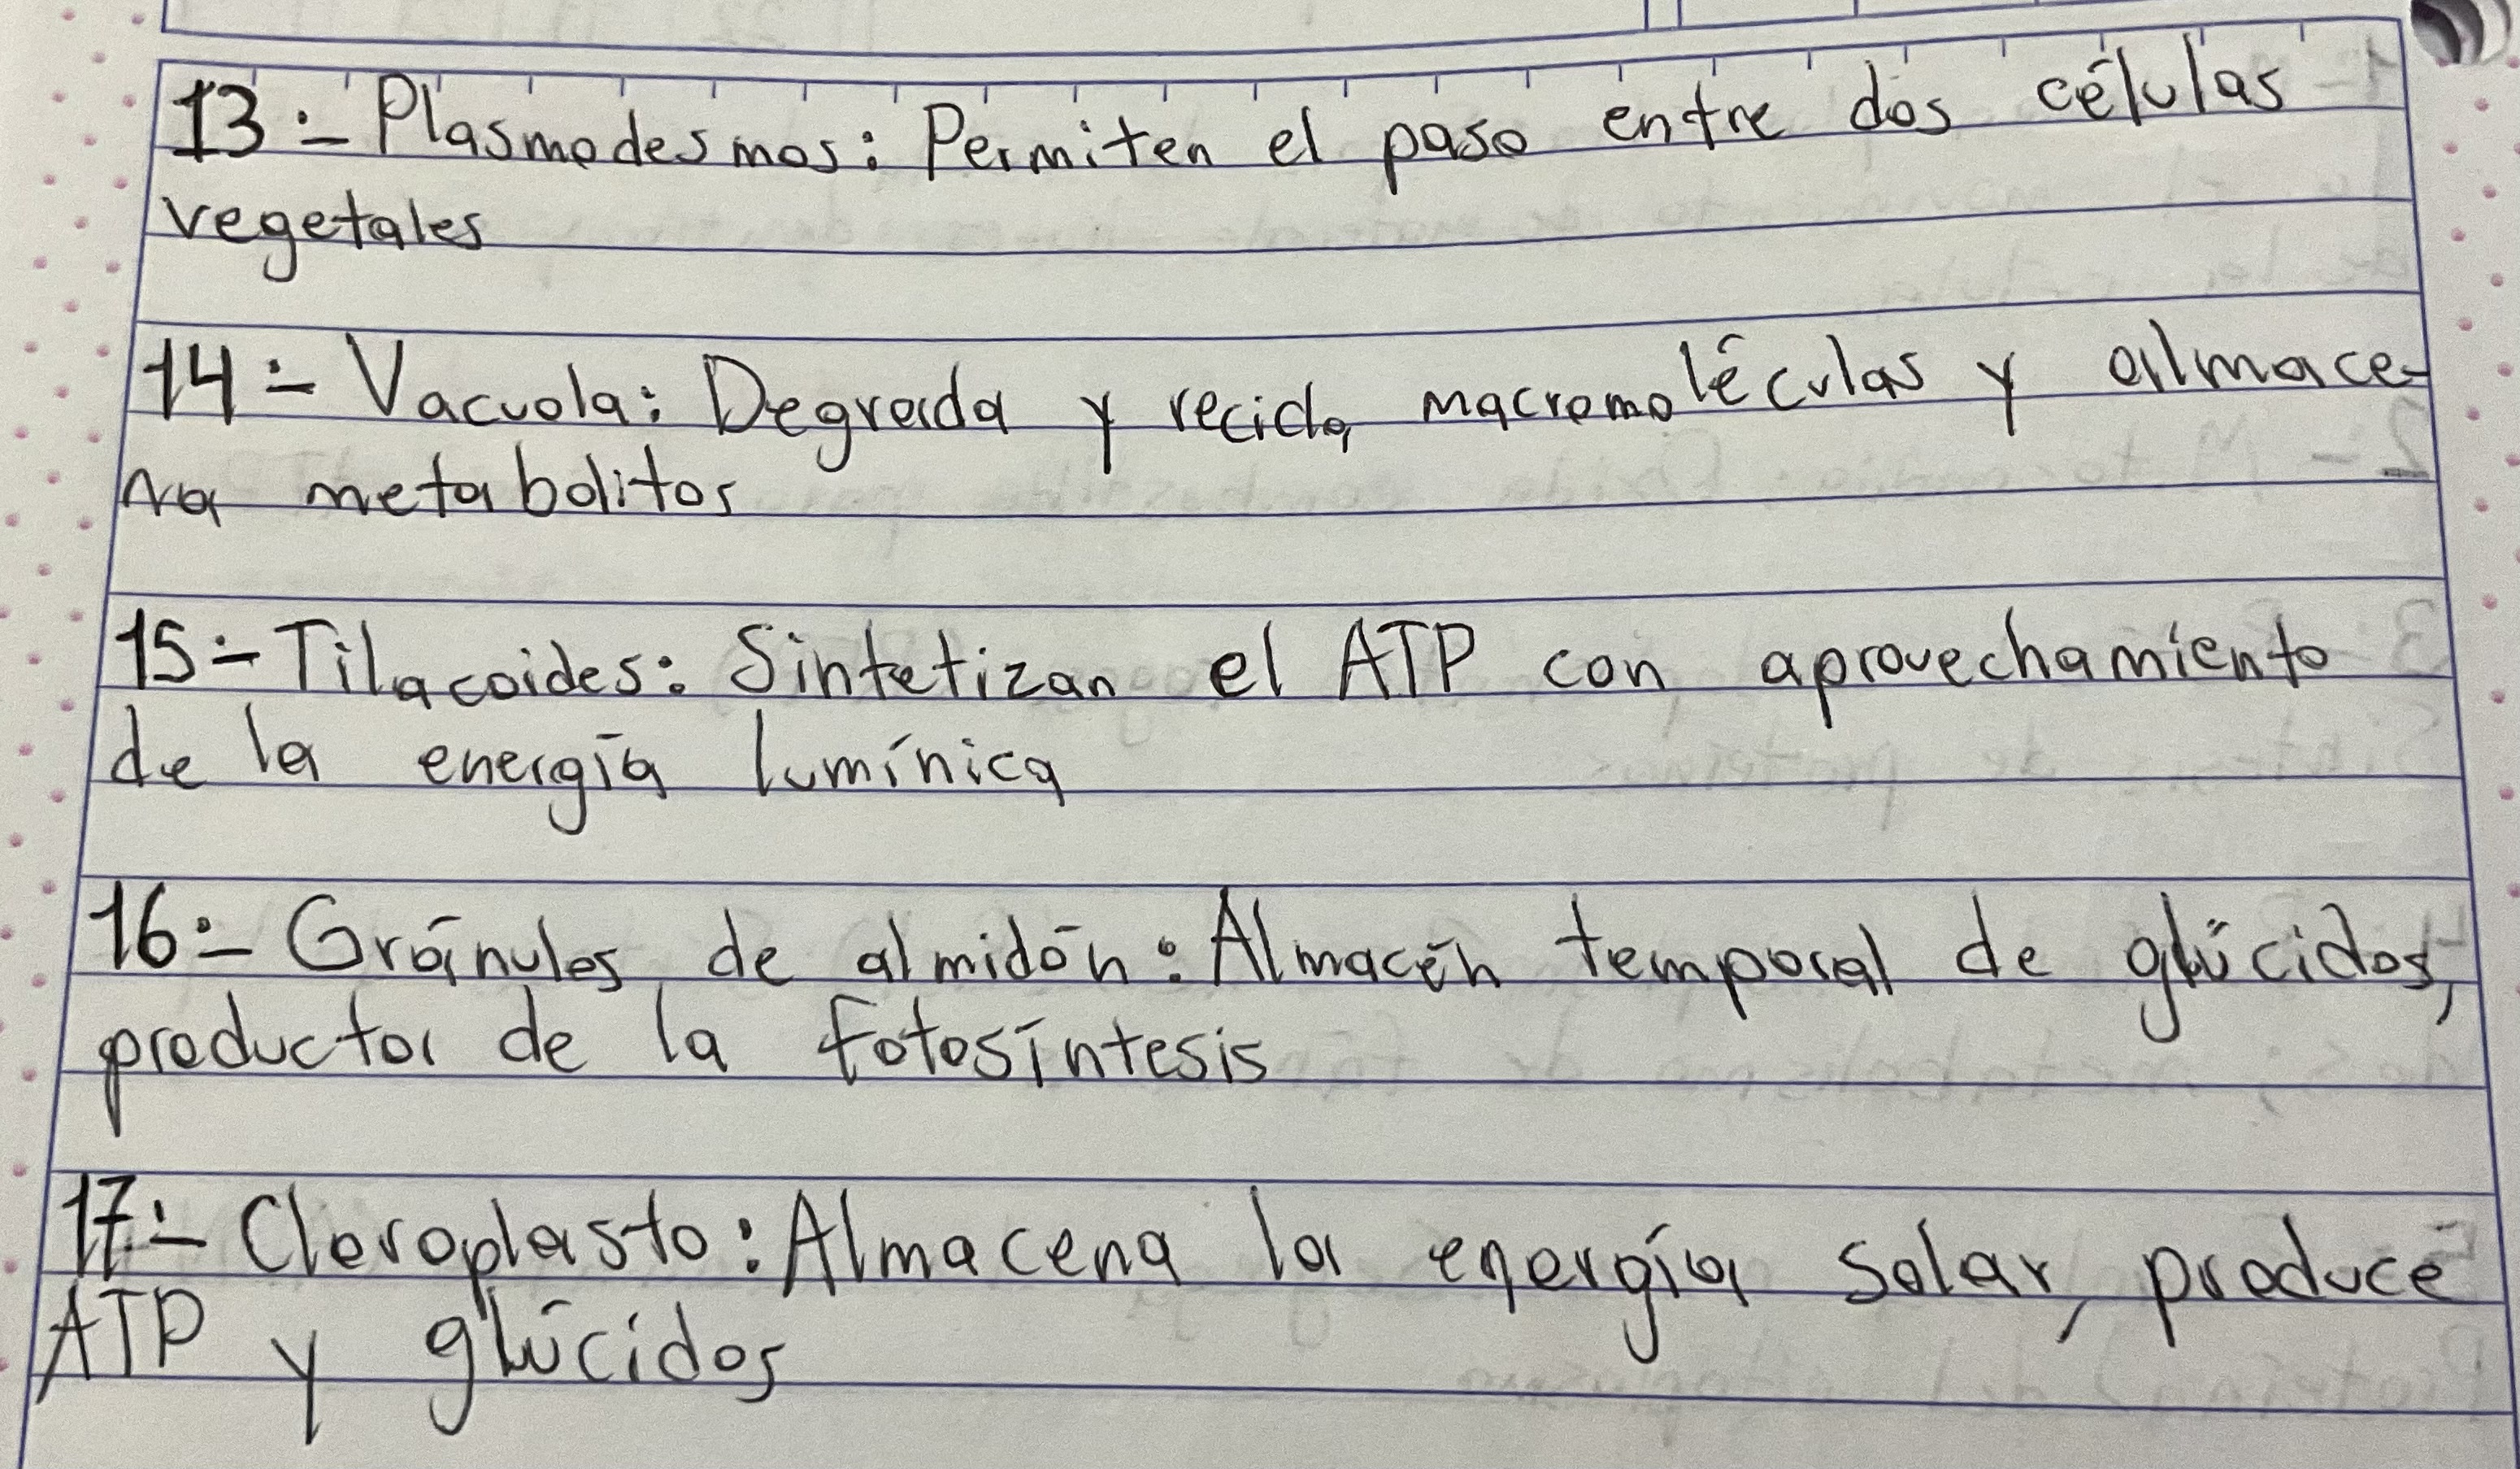 13.- Plasmodesmos: Permiten el paso entre dos células
vegetales
14.- Vacuola: Degrada y recicla macromoléculas y almace-
na metabolitos
15.- Tilacoides: Sintetizan el ATP con aprovechamiento
de la energía lumínica
16.- Gránulos de almidón: Almacén temporal de glúcidos,
productor de la fotosíntesis
17.- Cloroplasto: Almacena la energía solar, produce
ATP y glúcidos